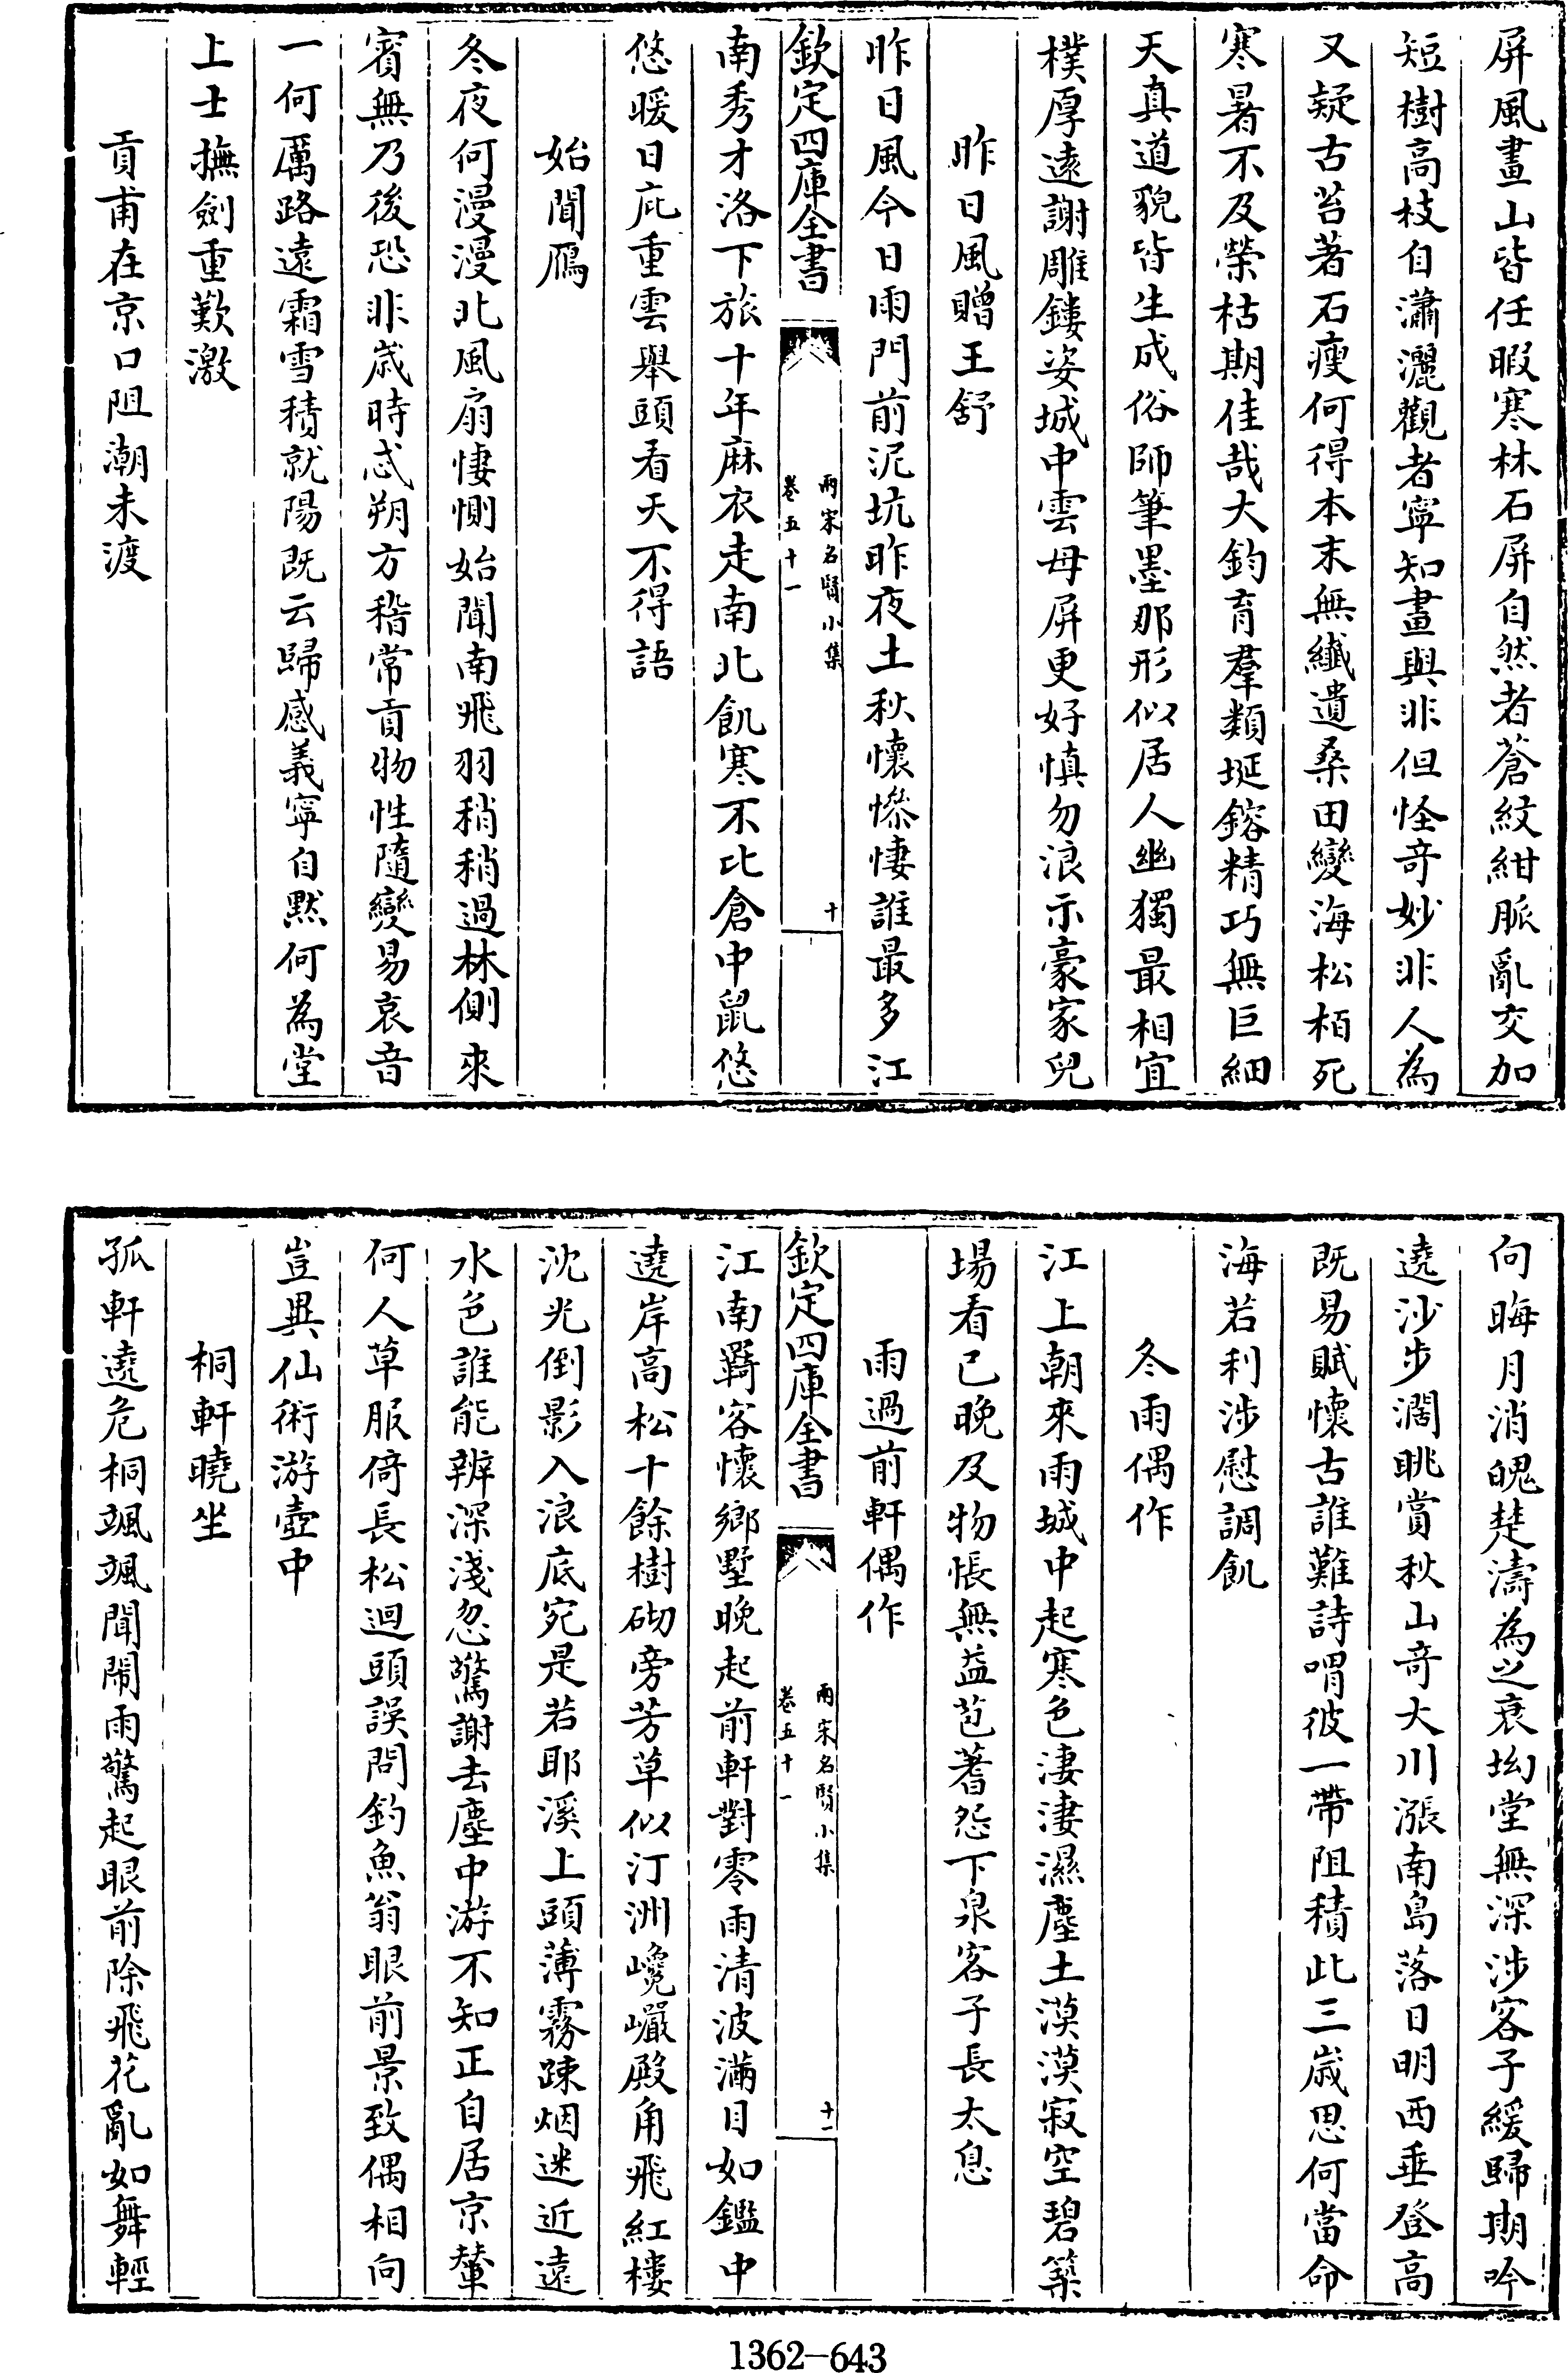 屏風畫山皆任暇寒林石屏自然者蒼紋紺脈亂交加
短樹高枝自瀟灑觀者寧知畫與非但怪奇妙非人為
又疑古苔著石瘦何得本末無纖遺桑田變海松栢死
寒暑不及榮枯期佳哉大鈞育羣類埏鎔精巧無巨細
天真道貌皆生成俗師筆墨那形似居人幽獨最相宜
樸厚遠謝雕鏤姿城中雲母屏更好慎勿浪示豪家兒
昨日風贈王舒
昨日風今日雨門前泥坑昨夜土秋懷慘悽誰最多江
欽定四庫全書
兩宋名賢小集
卷五十一
十
南秀才洛下旅十年麻衣走南北飢寒不比倉中鼠悠
悠暖日庇重雲舉頭看天不得語
始聞鴈
冬夜何漫漫北風扇悽惻始聞南飛羽稍稍過林側來
賓無乃後恐非歲時忒朔方稽常貢物性隨變易哀音
一何厲路遠霜雪積就陽既云歸感義寧自默何為堂
上士撫劍重歎激
貢甫在京口阻潮未渡
向晦月消魄楚濤為之衰坳堂無深涉客子緩歸期吟
遶沙步濶眺賞秋山奇大川漲南島落日明西垂登高
既易賦懷古誰難詩喟彼一帶阻積此三歲思何當命
海若利涉慰調飢
冬雨偶作
江上朝來雨城中起寒色淒淒濕塵土漠漠寂空碧築
場看已晚及物悵無益苞蓍怨下泉客子長太息
雨過前軒偶作
欽定四庫全書
兩宋名賢小集
卷五十一
十一
江南羇客懷鄉墅晚起前軒對零雨清波滿目如鑑中
遶岸高松十餘樹砌旁芳草似汀洲巉巗殿角飛紅樓
沈光倒影入浪底宛是若耶溪上頭薄霧疎烟迷近遠
水色誰能辨深淺忽驚謝去塵中游不知正自居京輦
何人草服倚長松迴頭誤問釣魚翁眼前景致偶相向
豈異仙術游壺中
桐軒曉坐
孤軒遶危桐颯颯聞鬧雨驚起眼前除飛花亂如舞輕
1362-643